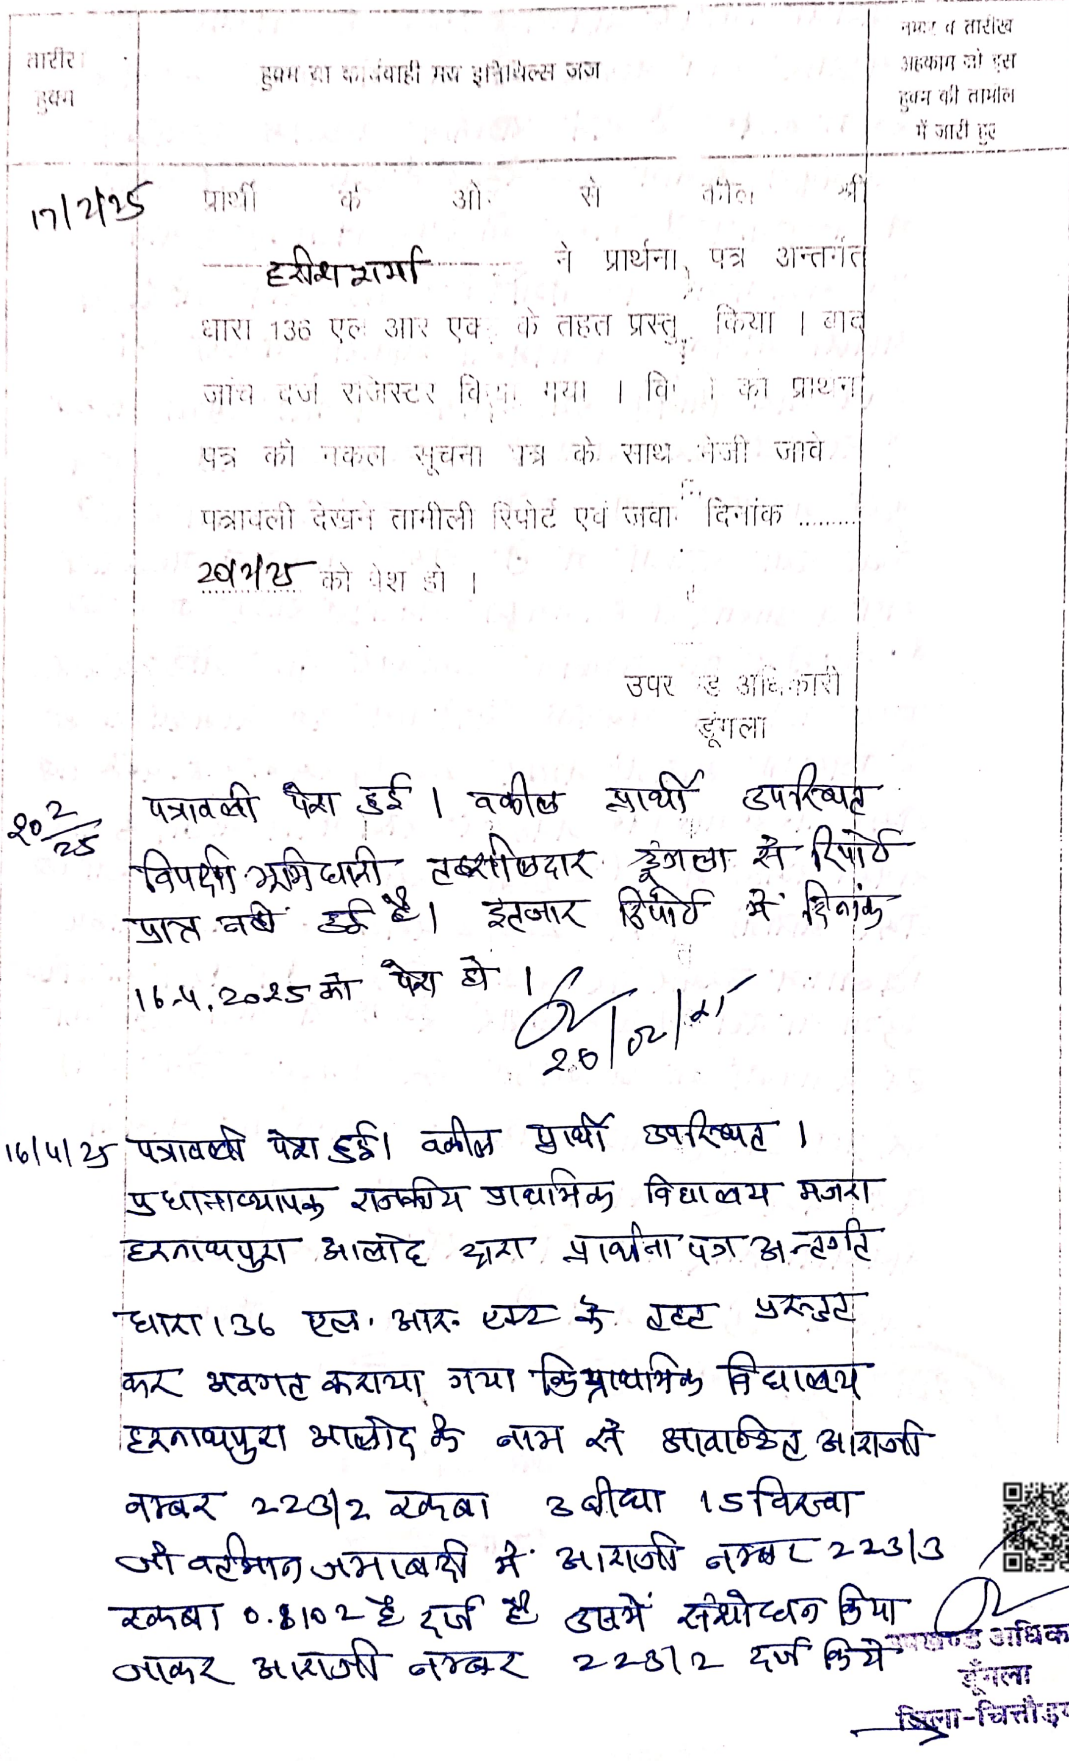 तारीख
हुक्म
हुक्म या कार्यवाही मय इनिशियल्स जज
नम्बर व तारीख
अहकाम जो इस
हुक्म की तामील
में जारी हुए
17/2/25
प्रार्थी क ओ से कील श्री
हरीश शर्मा ने प्रार्थना पत्र अन्तर्गत
धारा 136 एल आर एक के तहत प्रस्तु किया । बाद
जांच दर्ज रजिस्टर किया गया । वि को प्रार्थना
पत्र की नकल सूचना पत्र के साथ भेजी जावे
पत्रावली देखने तामीली रिपोर्ट एवं जवा दिनांक .........
20/2/25 को पेश हो ।
उपर ड अधिकारी
डूंगला
20 2/25
पत्रावली पेश हुई । वकील प्रार्थी उपस्थित
विपक्षी भूमिधारी तहसीलदार डूंगला से रिपोर्ट
प्राप्त नही हुई है । इंतजार रिपोर्ट में दिनांक
16.4.2025 को पेश हो ।
20/02/25
16/4/25 पत्रावली पेश हुई। वकील प्रार्थी उपस्थित ।
प्रधानाध्यापक राजकीय प्राथमिक विद्यालय मजरा
हरनाथपुरा आलोद द्वारा प्रार्थना पत्र अन्तर्गत
धारा 136 एल. आर. एक्ट के तहत प्रस्तुत
कर अवगत कराया गया कि प्राथमिक विद्यालय
हरनाथपुरा आलोद के नाम से आवाण्टित आराजी
नम्बर 223/2 रकबा 3 बीघा 15 विस्वा
जो वर्तमान जमाबन्दी में आराजी नम्बर 223/3
रकबा 0.8102 है दर्ज है उसमें संशोधन किया
जाकर आराजी नम्बर 223/2 दर्ज किये
उपखण्ड अधिक
डूँगला
जिला-चित्तौड़